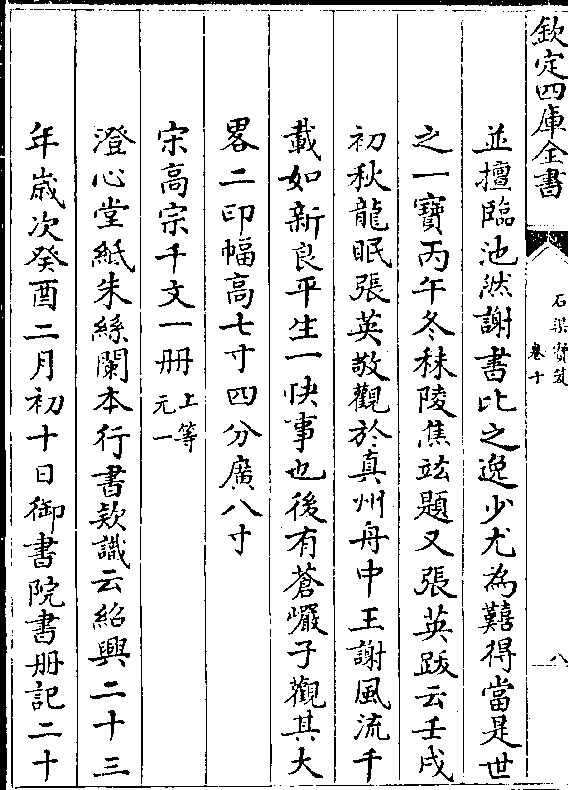 欽定四庫全書
石渠寶笈
卷十
八
並擅臨池然謝書比之逸少尤為難得當是世
之一寶丙午冬秣陵焦竑題又張英跋云壬戌
初秋龍眠張英敬觀於真州舟中王謝風流千
載如新良平生一快事也後有蒼巖子觀其大
畧二印幅高七寸四分廣八寸
宋高宗千文一冊上等元一
澄心堂紙朱絲闌本行書欵識云紹興二十三
年歲次癸酉二月初十日御書院書冊記二十